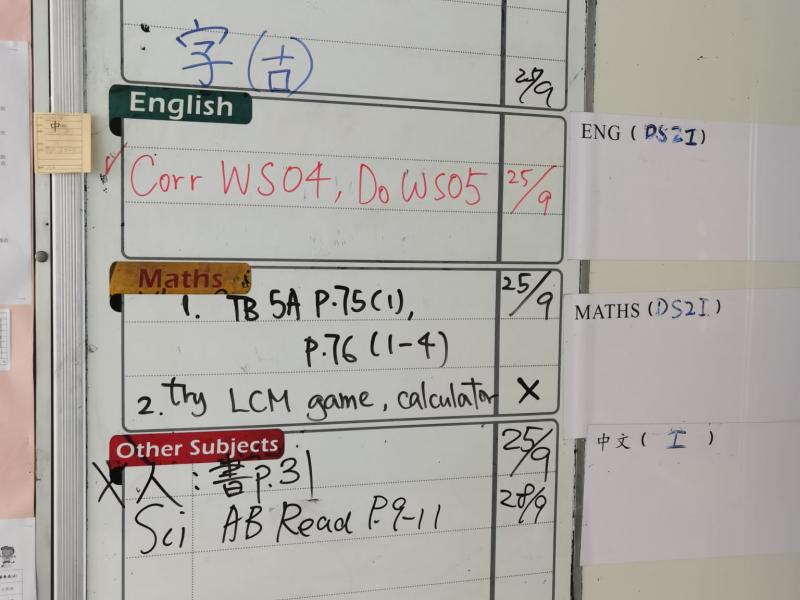 字(古)
25/9
English
中
Corr WS04, Do WS05 25/9
ENG (DS2I)
Maths
1. TB 5A P.75(1), 25/9
P.76 (1-4)
MATHS (DS2I)
2. try LCM game, calculator X
Other Subjects
人:書p.31 25/9
Sci AB Read P.9-11 28/9
中文( I )